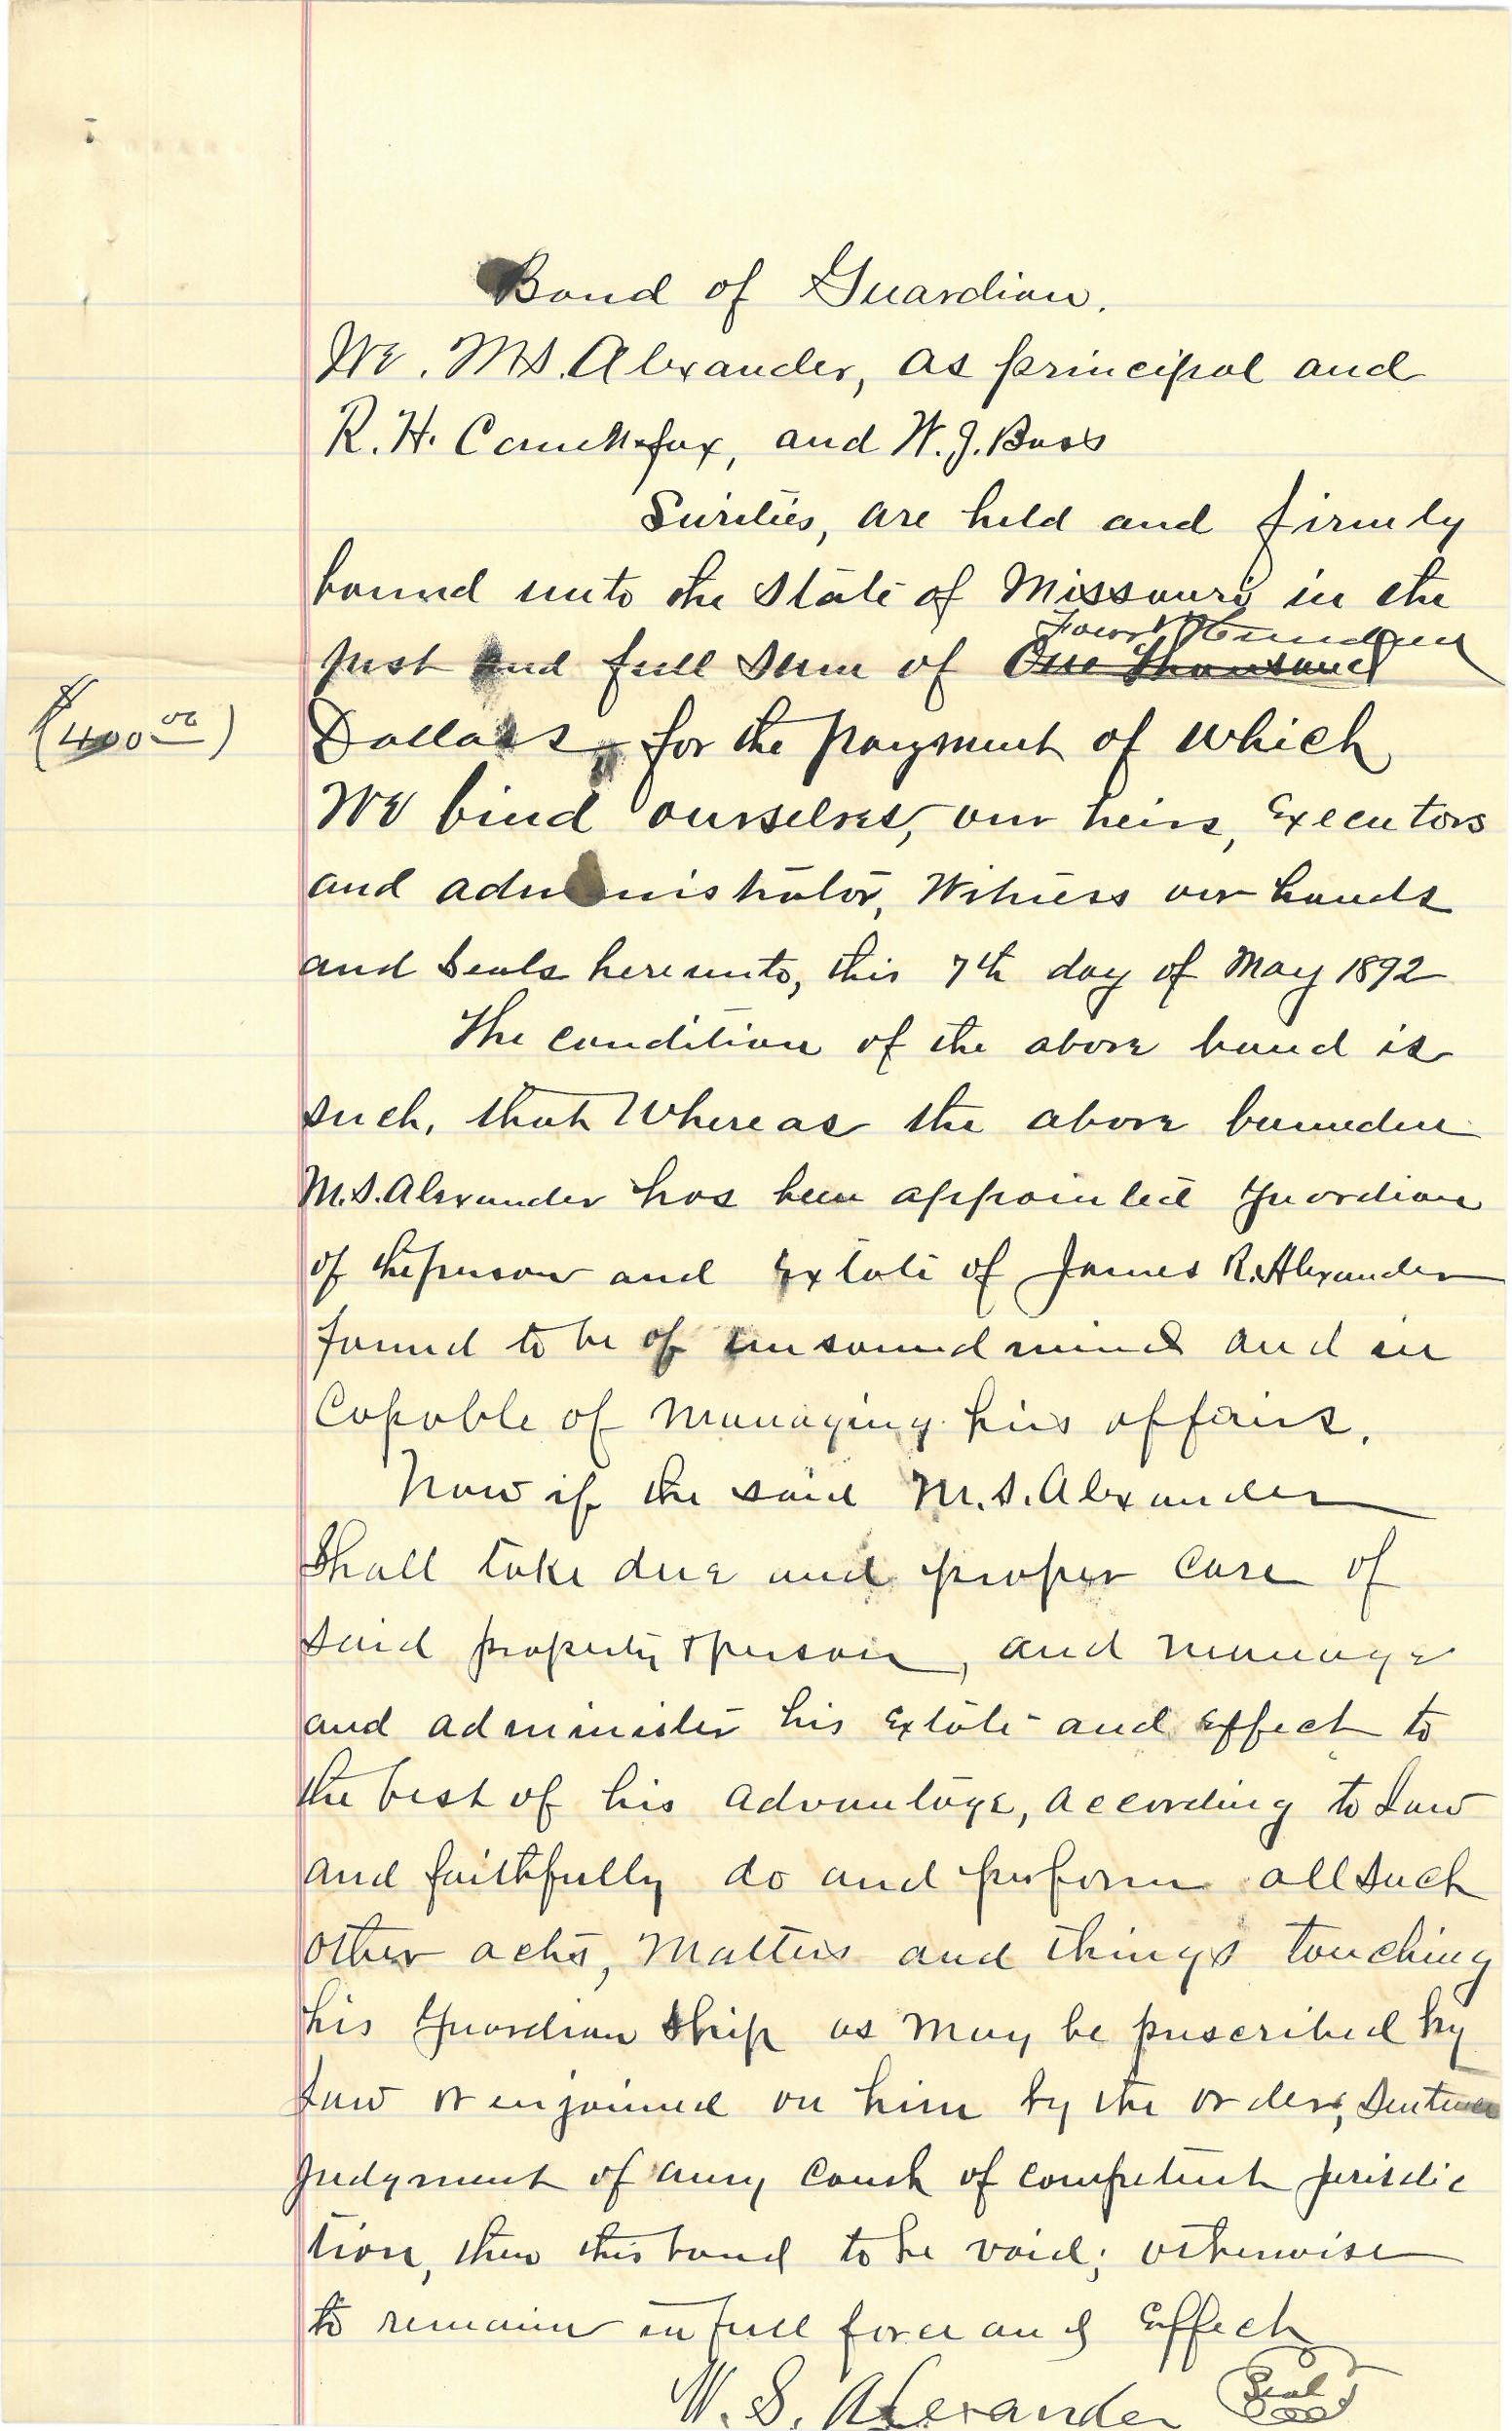 Bond of Guardian.
We. M.S. Alexander, as principal and
R.H. and W.J. Bass
Sureties, are held and firmly
bound unto the State of Missouri in the
Four Hundred
Just and full sum of One Thousand
($400.00)
Dollars, for the payment of which
We bind ourselves, our heirs, Executors
and administrator, Witness our hands
and Seals hereunto, this 7th day of May 1892
The condition of the above bond is
such, that Whereas the above bounden
M.S. Alexander has been appointed Guardian
of the person and Estate of James R. Alexander
found to be of unsound mind and in
Capable of Managing his affairs.
Now if the said M.S. Alexander
Shall take due and proper Care of
said property & person, and manage
and administer his Estate and effect to
the best of his advantage, according to Law
and faithfully do and perform all such
other acts, Matters and things touching
his Guardian Ship as may be prescribed by
Law or enjoined on him by the orders, Sentence
Judgment of any Court of competent Jurisdic
tion, then this bond to be void; otherwise
to remain in full force and Effect
M. S. Alexander Seal